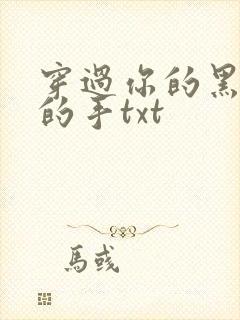 穿過你的黑
的手txt
馬彧